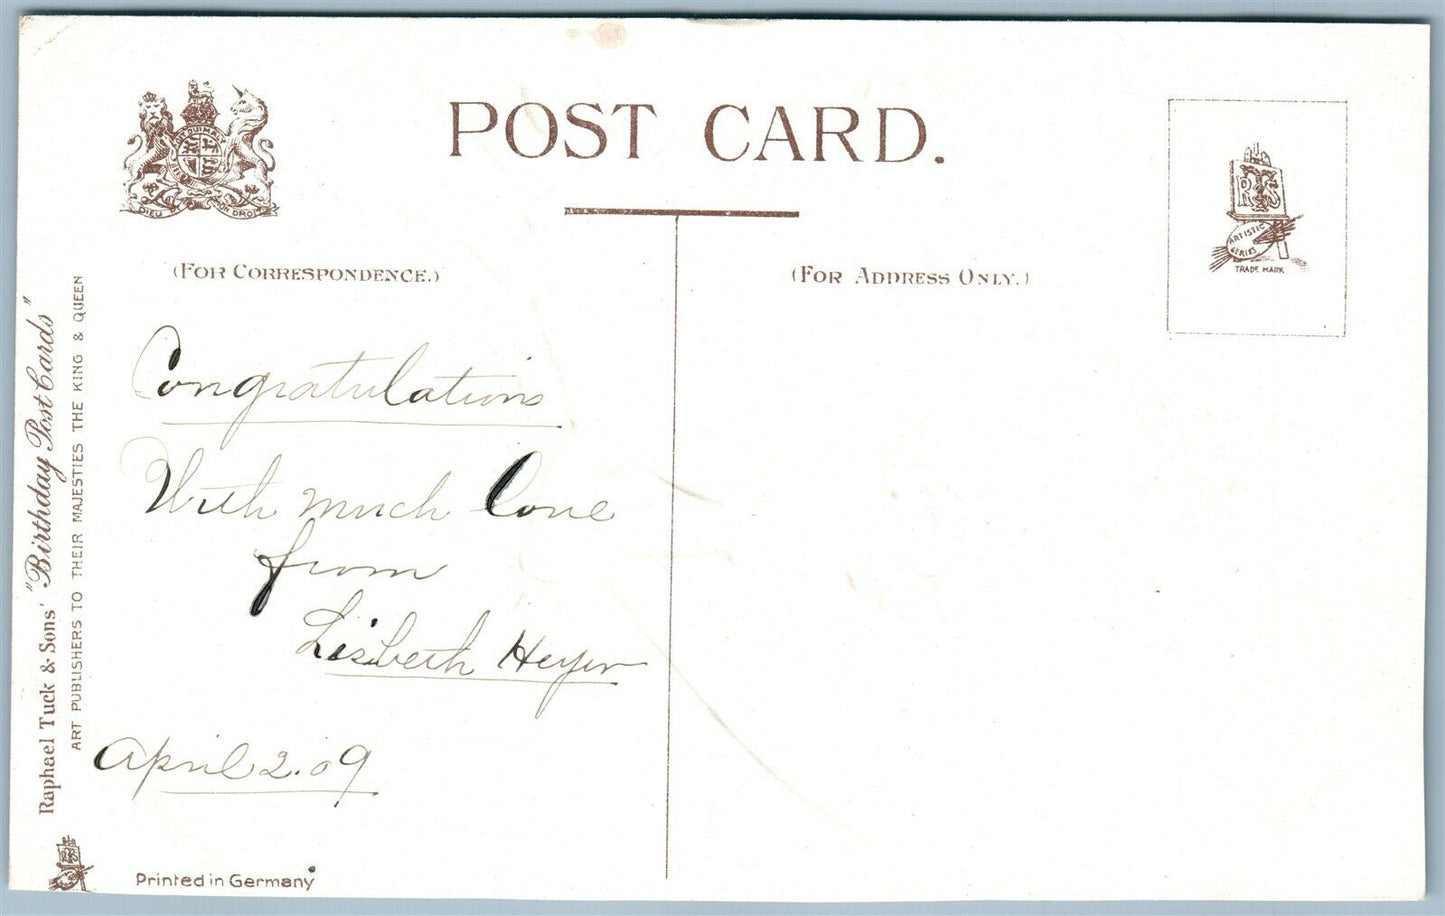 POST CARD.
(FOR CORRESPONDENCE.)
(FOR ADDRESS ONLY.)
Congratulations
With much love
from
Lisbeth Heyer
April 2. 09
Printed in Germany
Raphael Tuck & Sons' "Birthday Post Cards"
ART PUBLISHERS TO THEIR MAJESTIES THE KING & QUEEN
DIEU ET MON DROIT
RTS
ARTISTIC
SERIES
TRADE MARK